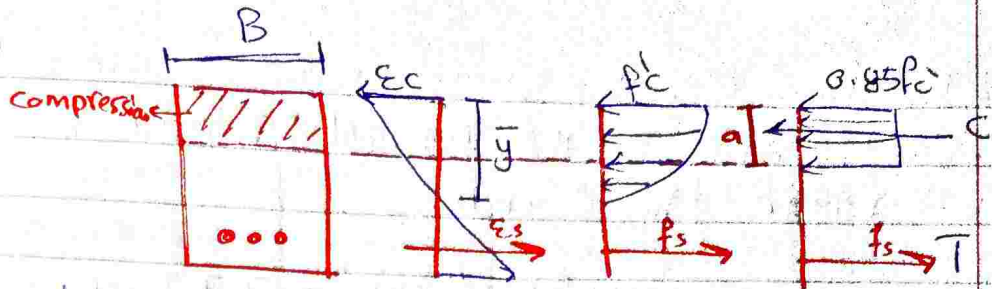 B
compression
εc
ȳ
εs
f'c
fs
a
0.85fc'
C
fs
T